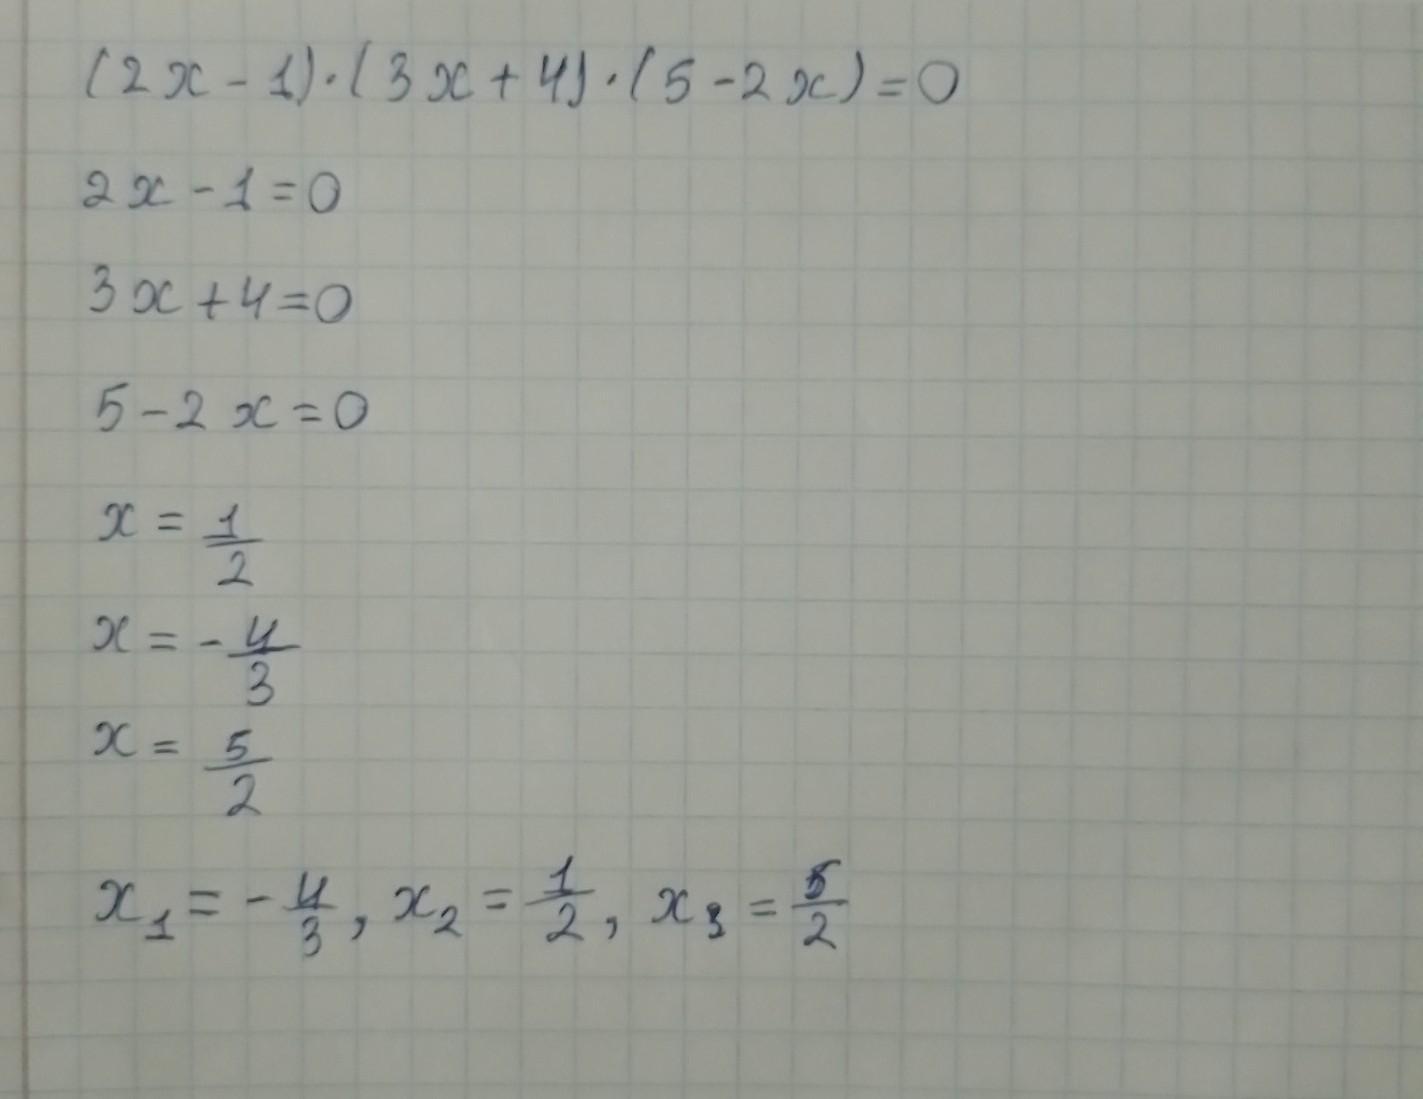 (2x - 1)·(3x + 4)·(5 - 2x) = 0
2x - 1 = 0
3x + 4 = 0
5 - 2x = 0
x = 1/2
x = - 4/3
x = 5/2
x₁ = - 4/3, x₂ = 1/2, x₃ = 5/2